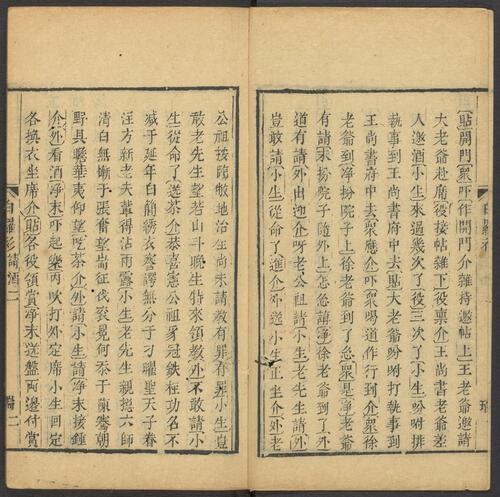 貼開門衆吓作開門介雜持邀帖上王老爺邀請
大老爺赴席役接帖雜下役稟介王尚書老爺差
人邀酒小生來過幾次了役三次了小生吩咐排
執事到王尚書府中去貼大老爺吩咐打執事到
王尚書府中去衆應介吓衆喝道作行到介衆徐
老爺到淨扮院子上徐老爺到了怎衆是淨老爺
有請末扮院子隨外上怎怎講淨徐老爺到了外
道有請外出迎介呀老公祖請小生老先生請外
豈敢請小生從命了進介外送小生正坐介外老
公祖按臨敝地治生尚未請教有罪有罪小生豈
敢老先生望若山斗晚生特來領教外不敢請小
生從命了送茶介恭喜憲公祖豸冠鉄柱功名不
减于延年白簡綉衣謇諤無分于刁曜聖天子春
汪方新老夫輩得沾雨露小生老先生親提六師
清白無慚于張奮望崙征伐袞冕何忝于竇朝
野具瞻華夷仰望吃茶介外請小生請淨末接鐘
介外看酒淨末吓起樂內吹打外定席小生回定
各換衣坐席介貼各役領賞淨末送盤兩邊付賞
白羅衫請酒二